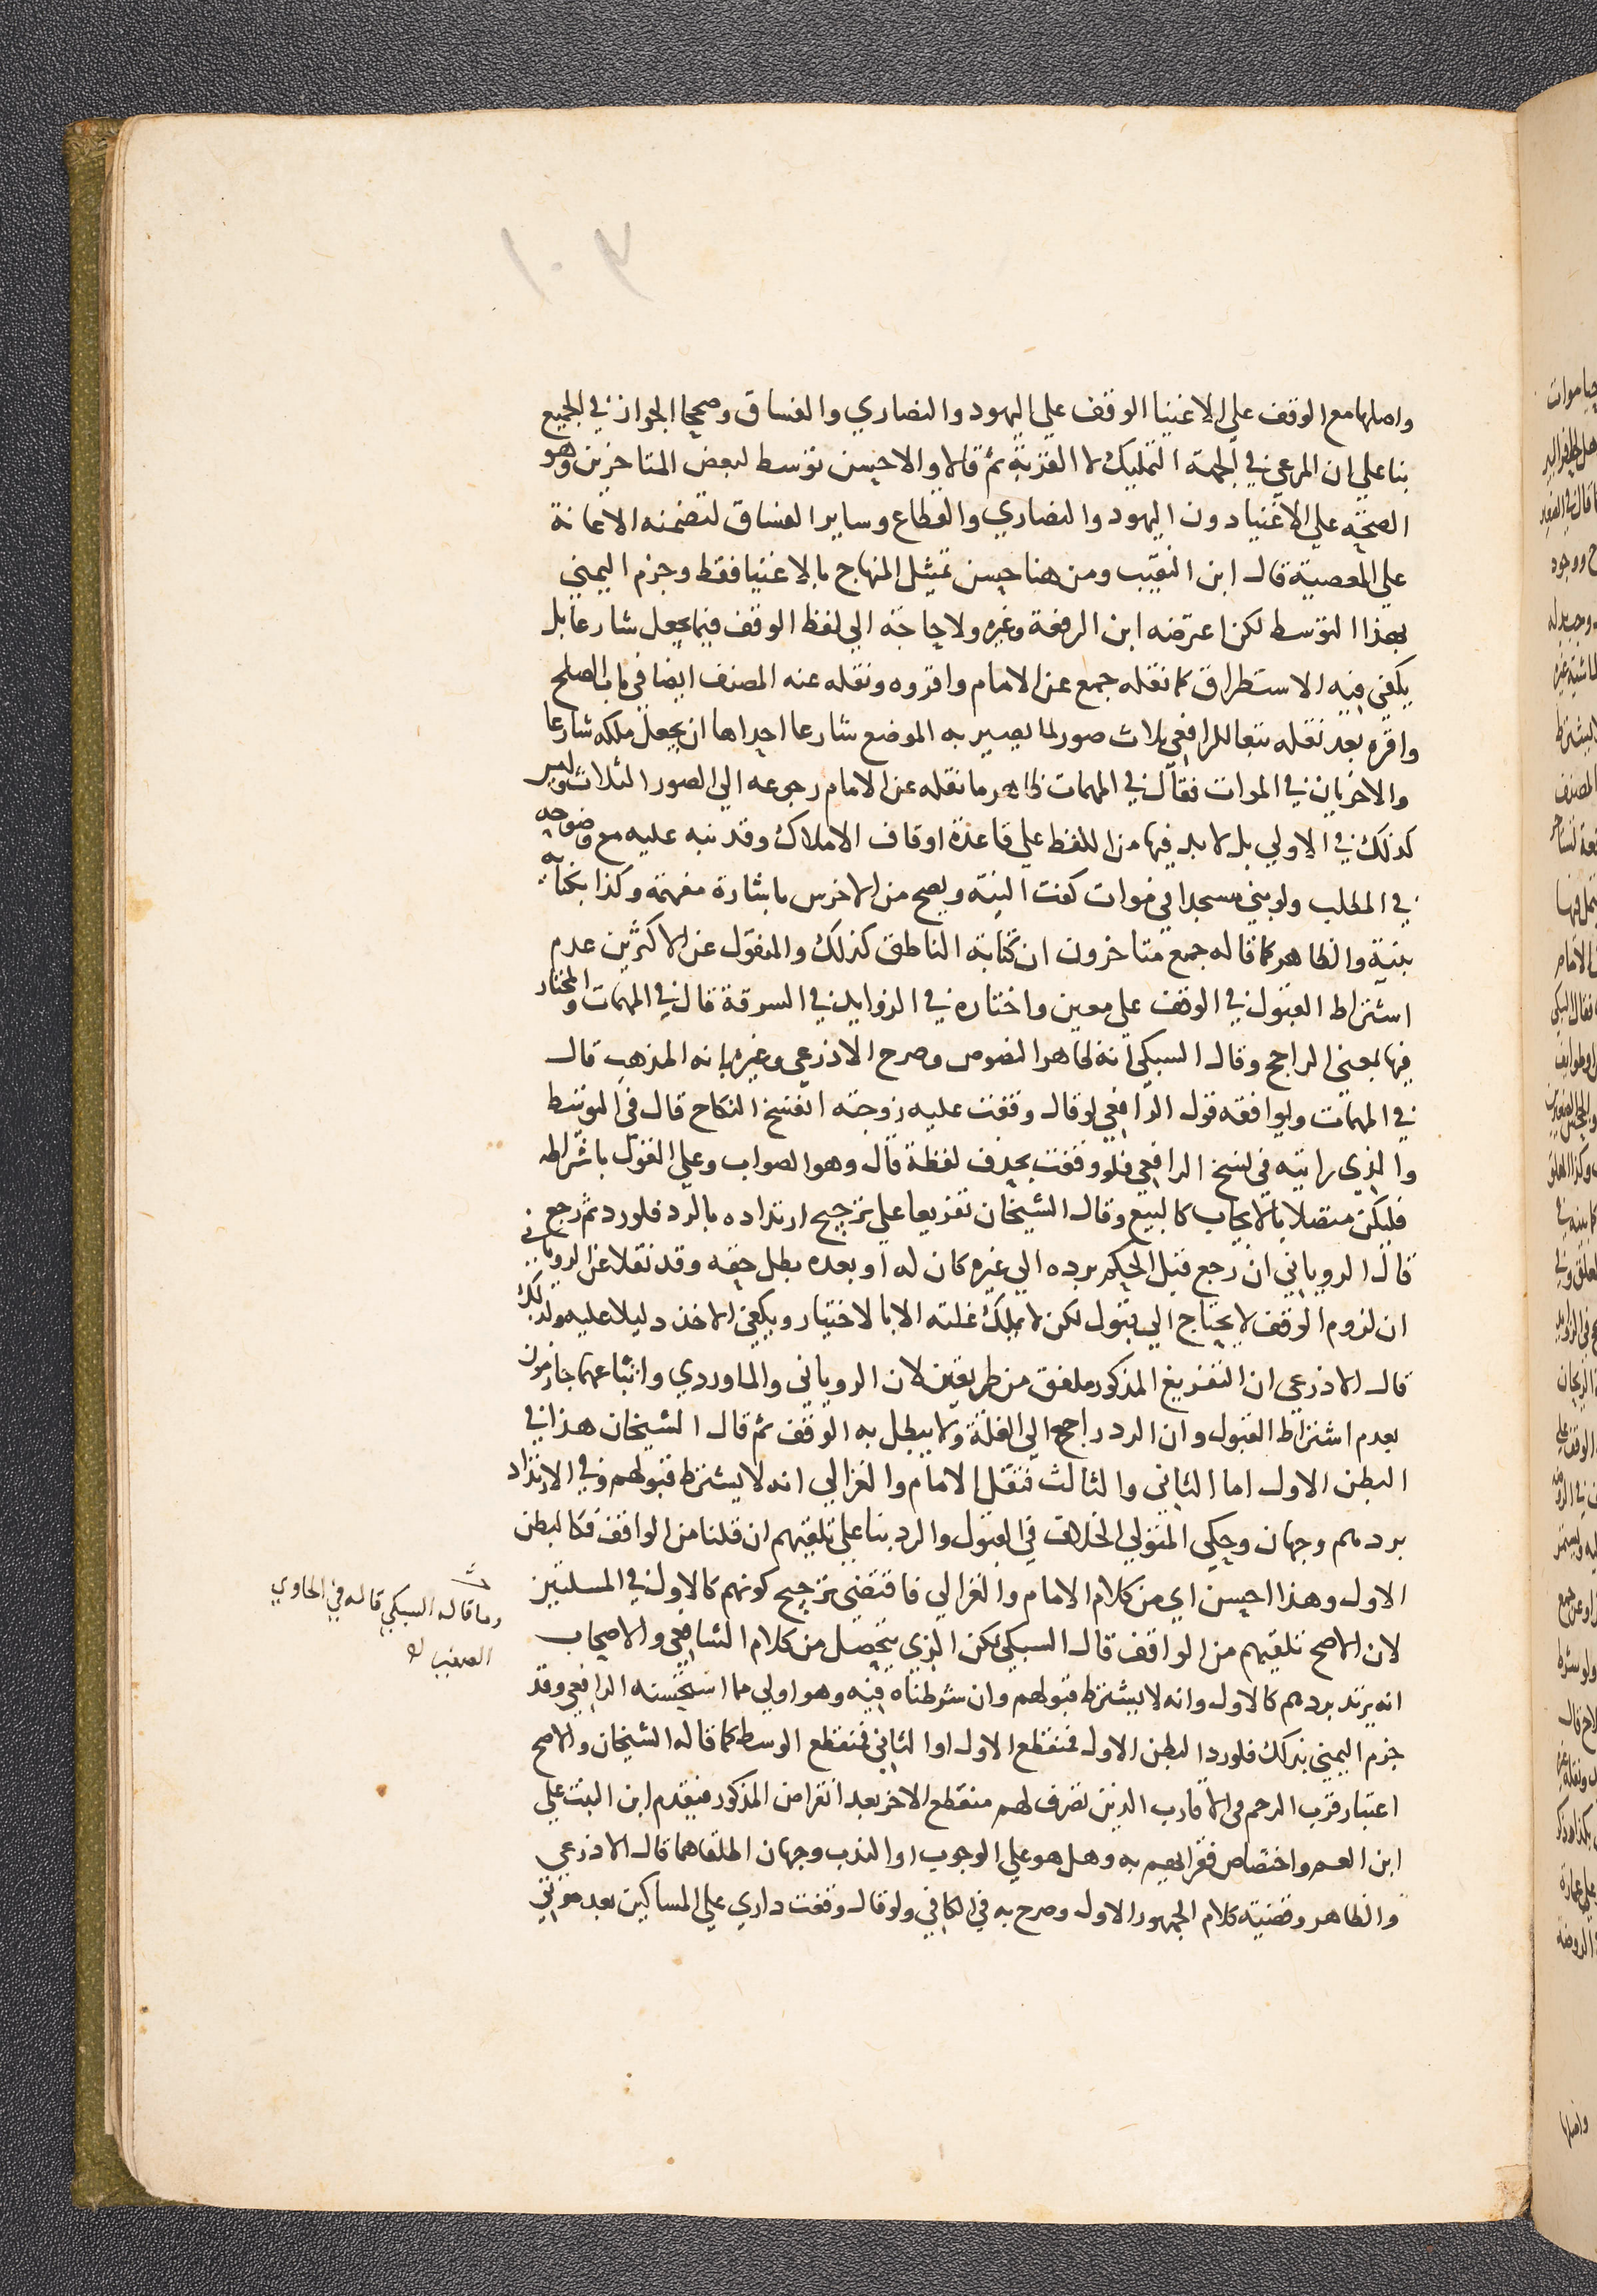 ١٠٣
واصلها مع الوقف علي الاغنيا الوقف علي اليهود والنصاري والفساق وصححا الجواز في الجميع
بنا علي ان المرعي في الجهة التمليك لا القربة ثم قالا والاحسن توسط لبعض المتاخرين وهو
الصحة علي الاغنيا دون اليهود والنصاري والقطاع وساير الفساق لتضمنه الاعانة
علي المعصية قال ابن النقيب ومن هنا حسن تمثيل المنهاج بالاغنيا فقط وجزم اليمني
بهذا التوسط لكن اعترضه ابن الرفعة وغيره ولا حاجة الي لفظ الوقف فيما يجعل شارعا بل
يكفي فيه الاستطراق كما نقله جمع عن الامام واقروه ونقله عنه المصنف ايضا في باب الصلح
واقره بعد نقله تبعا للرافعي ثلاث صور لما يصير به الموضع شارعا احداها ان يجعل ملكه شارعا
والاخريان في الموات فقال في المهمات ظاهر ما نقله عن الامام رجوعه الي الصور الثلاث وليس
كذلك في الاولي بل لا بد فيها من اللفظ علي قاعدة اوقاف الاملاك وقد نبه عليه مع وضوحه
في المطلب ولو بني مسجدا في موات كفت النية ويصح من الاخرس باشارة مفهمة وكذا بكتابة
بنية والظاهر كما قاله جمع متاخرون ان كتابة الناطق كذلك والمنقول عن الاكثرين عدم
اشتراط القبول في الوقف علي معين واختاره في الزوايد في السرقة قال في المهمات والمختار
فيها بمعني الراجح وقال السبكي انه ظاهر النصوص وصرح الاذرعي وغيره بانه المذهب قال
في المهمات ويوافقه قول الرافعي لو قال وقفت عليه زوجته انفسخ النكاح قال في التوسط
والذي رايته في نسخ الرافعي فلو وقفت بحذف لفظة قال وهو الصواب وعلي القول باشتراطه
فليكن متصلا بالايجاب كالبيع وقال الشيخان تفريعا علي ترجيح ارتداده بالرد فلو رد ثم رجع
قال الروياني ان رجع قبل الحكم برده الي غيره كان له او بعده بطل حقه وقد نقلا عن الروياني
ان لزوم الوقف لا يحتاج الي قبول لكن لا يملك غلته الا بالاختيار ويكفي الاخذ دليلا عليه ولذلك
قال الاذرعي ان التفريع المذكور ملفق من طريقين لان الروياني والماوردي واتباعهما جازمون
بعدم اشتراط القبول وان الرد راجع الي الغلة ولا يبطل به الوقف ثم قال الشيخان هذا في
البطن الاول اما الثاني والثالث فنقل الامام والغزالي انه لا يشترط قبولهم وفي الارتداد
بردهم وجهان وحكي المتولي الخلاف في القبول والرد بنا علي تلقيهم ان قلنا من الواقف فكالبطن
الاول وهذا احسن اي من كلام الامام والغزالي فاقتضي ترجيح كونهم كالاول في المسلتين
لان الاصح تلقيهم من الواقف قال السبكي لكن الذي يتحصل من كلام الشافعي والاصحاب
انه يرتد بردهم كالاول وانه لا يشترط قبولهم وان شرطناه فيه وهو اولي مما استحسنه الرافعي وقد
جزم اليمني بذلك فلو رد البطن الاول فمنقطع الاول او الثاني فمنقطع الوسط كما قاله الشيخان والاصح
اعتبار قرب الرحم في الاقارب الذين تصرف لهم منقطع الاخر بعد انقراض المذكور فيقدم ابن البنت علي
ابن العم واختصاص فقرايهم به وهل هو علي الوجوب او الندب وجهان اطلقاهما قال الاذرعي
والظاهر وقضية كلام الجمهور الاول وصرح به في الكافي ولو قال وقفت داري علي المساكين بعد موتي
وما قاله السبكي قاله في الحاوي
الصغير